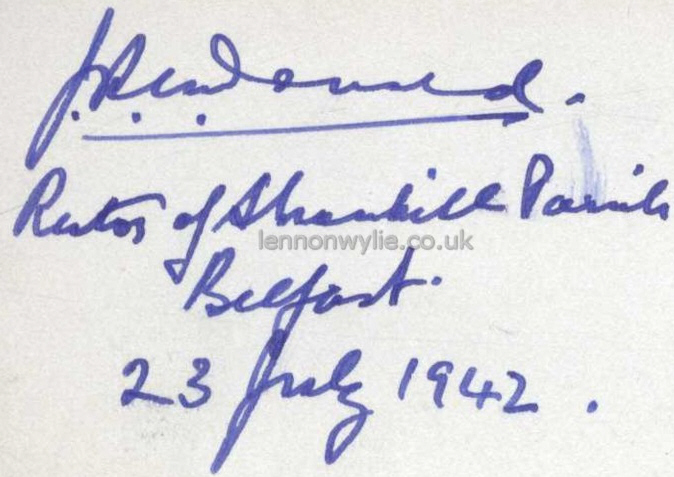 Rector of Shankill Parish
lennonwylie.co.uk
Belfast.
23 July 1942.